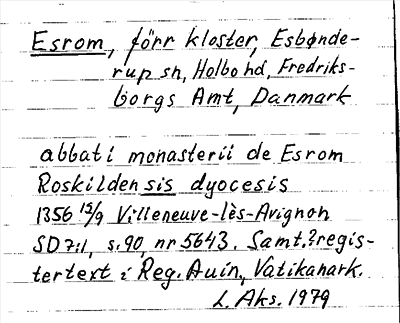 Esrom, förr kloster, Esbønde-
rup sn, Holbo hd, Fredriks-
borgs Amt, Danmark
abbati monasterii de Esrom
Roskildensis dyocesis
1356 15/9 Villeneuve-lès-Avignon
SD 7:1, s. 90, nr 5643. Samt.? regis-
tertext i Reg. Auin., Vatikanark.
L. Aks. 1979